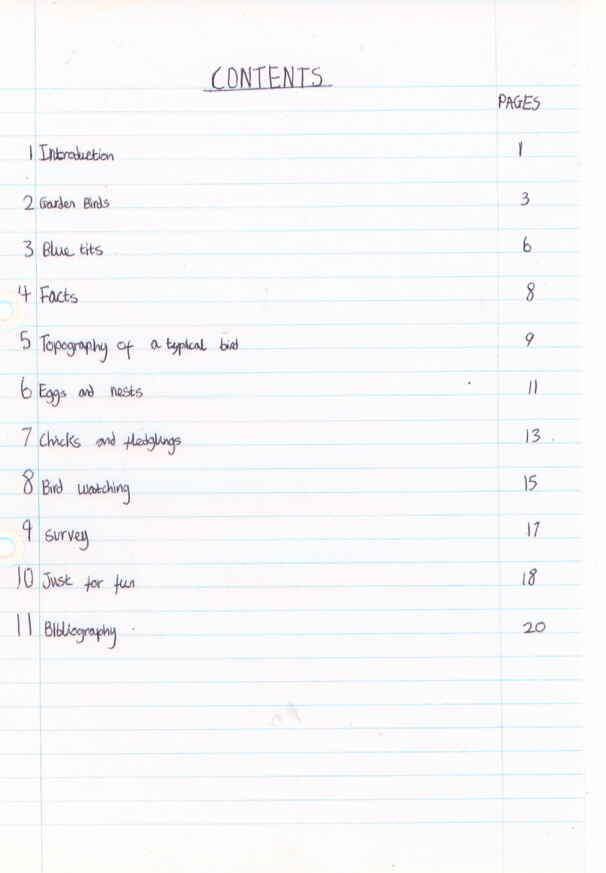 CONTENTS
PAGES
1 Introduction 1
2 Garden Birds 3
3 Blue tits 6
4 Facts 8
5 Topography of a typical bird 9
6 Eggs and nests 11
7 Chicks and fledglings 13
8 Bird watching 15
9 Survey 17
10 Just for fun 18
11 Bibliography 20